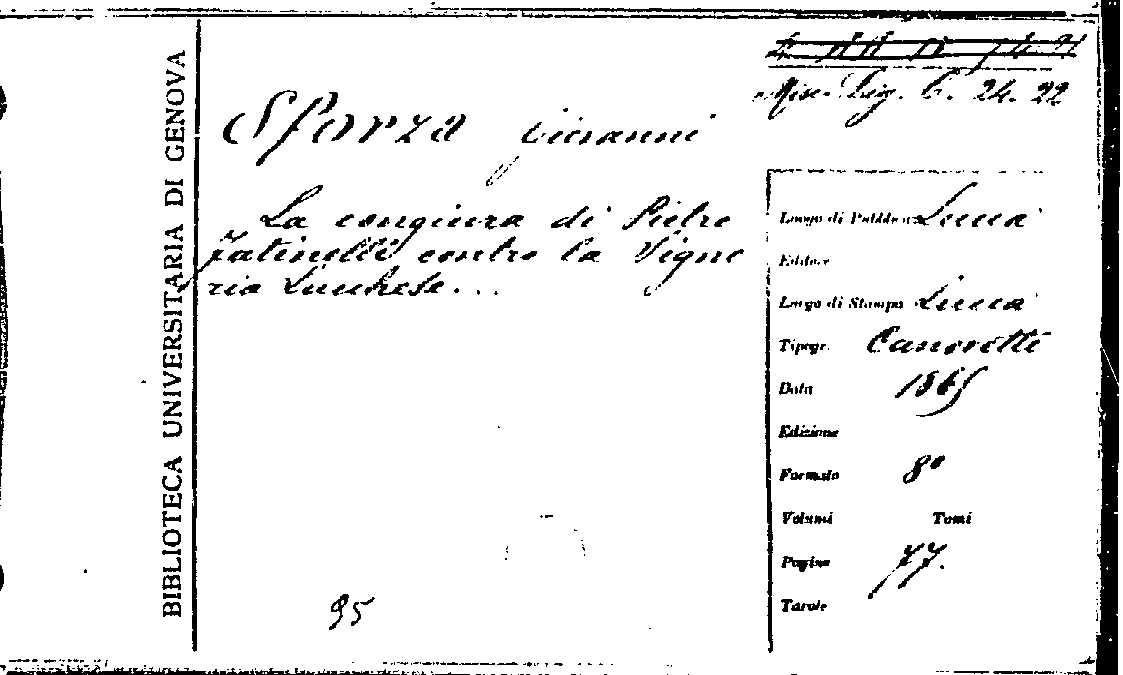 BIBLIOTECA UNIVERSITARIA DI GENOVA
Misc. Lig. C. 24. 22
Sforza Giovanni
La congiura di Pietro
Fatinelli contro la Signo
ria Lucchese...
Luogo di Pubblicaz. Lucca
Editore
Luogo di Stampa Lucca
Tipogr. Canovetti
Data 1865
Edizione
Formato 8°
Volumi Tomi
Pagine 77.
Tavole
95